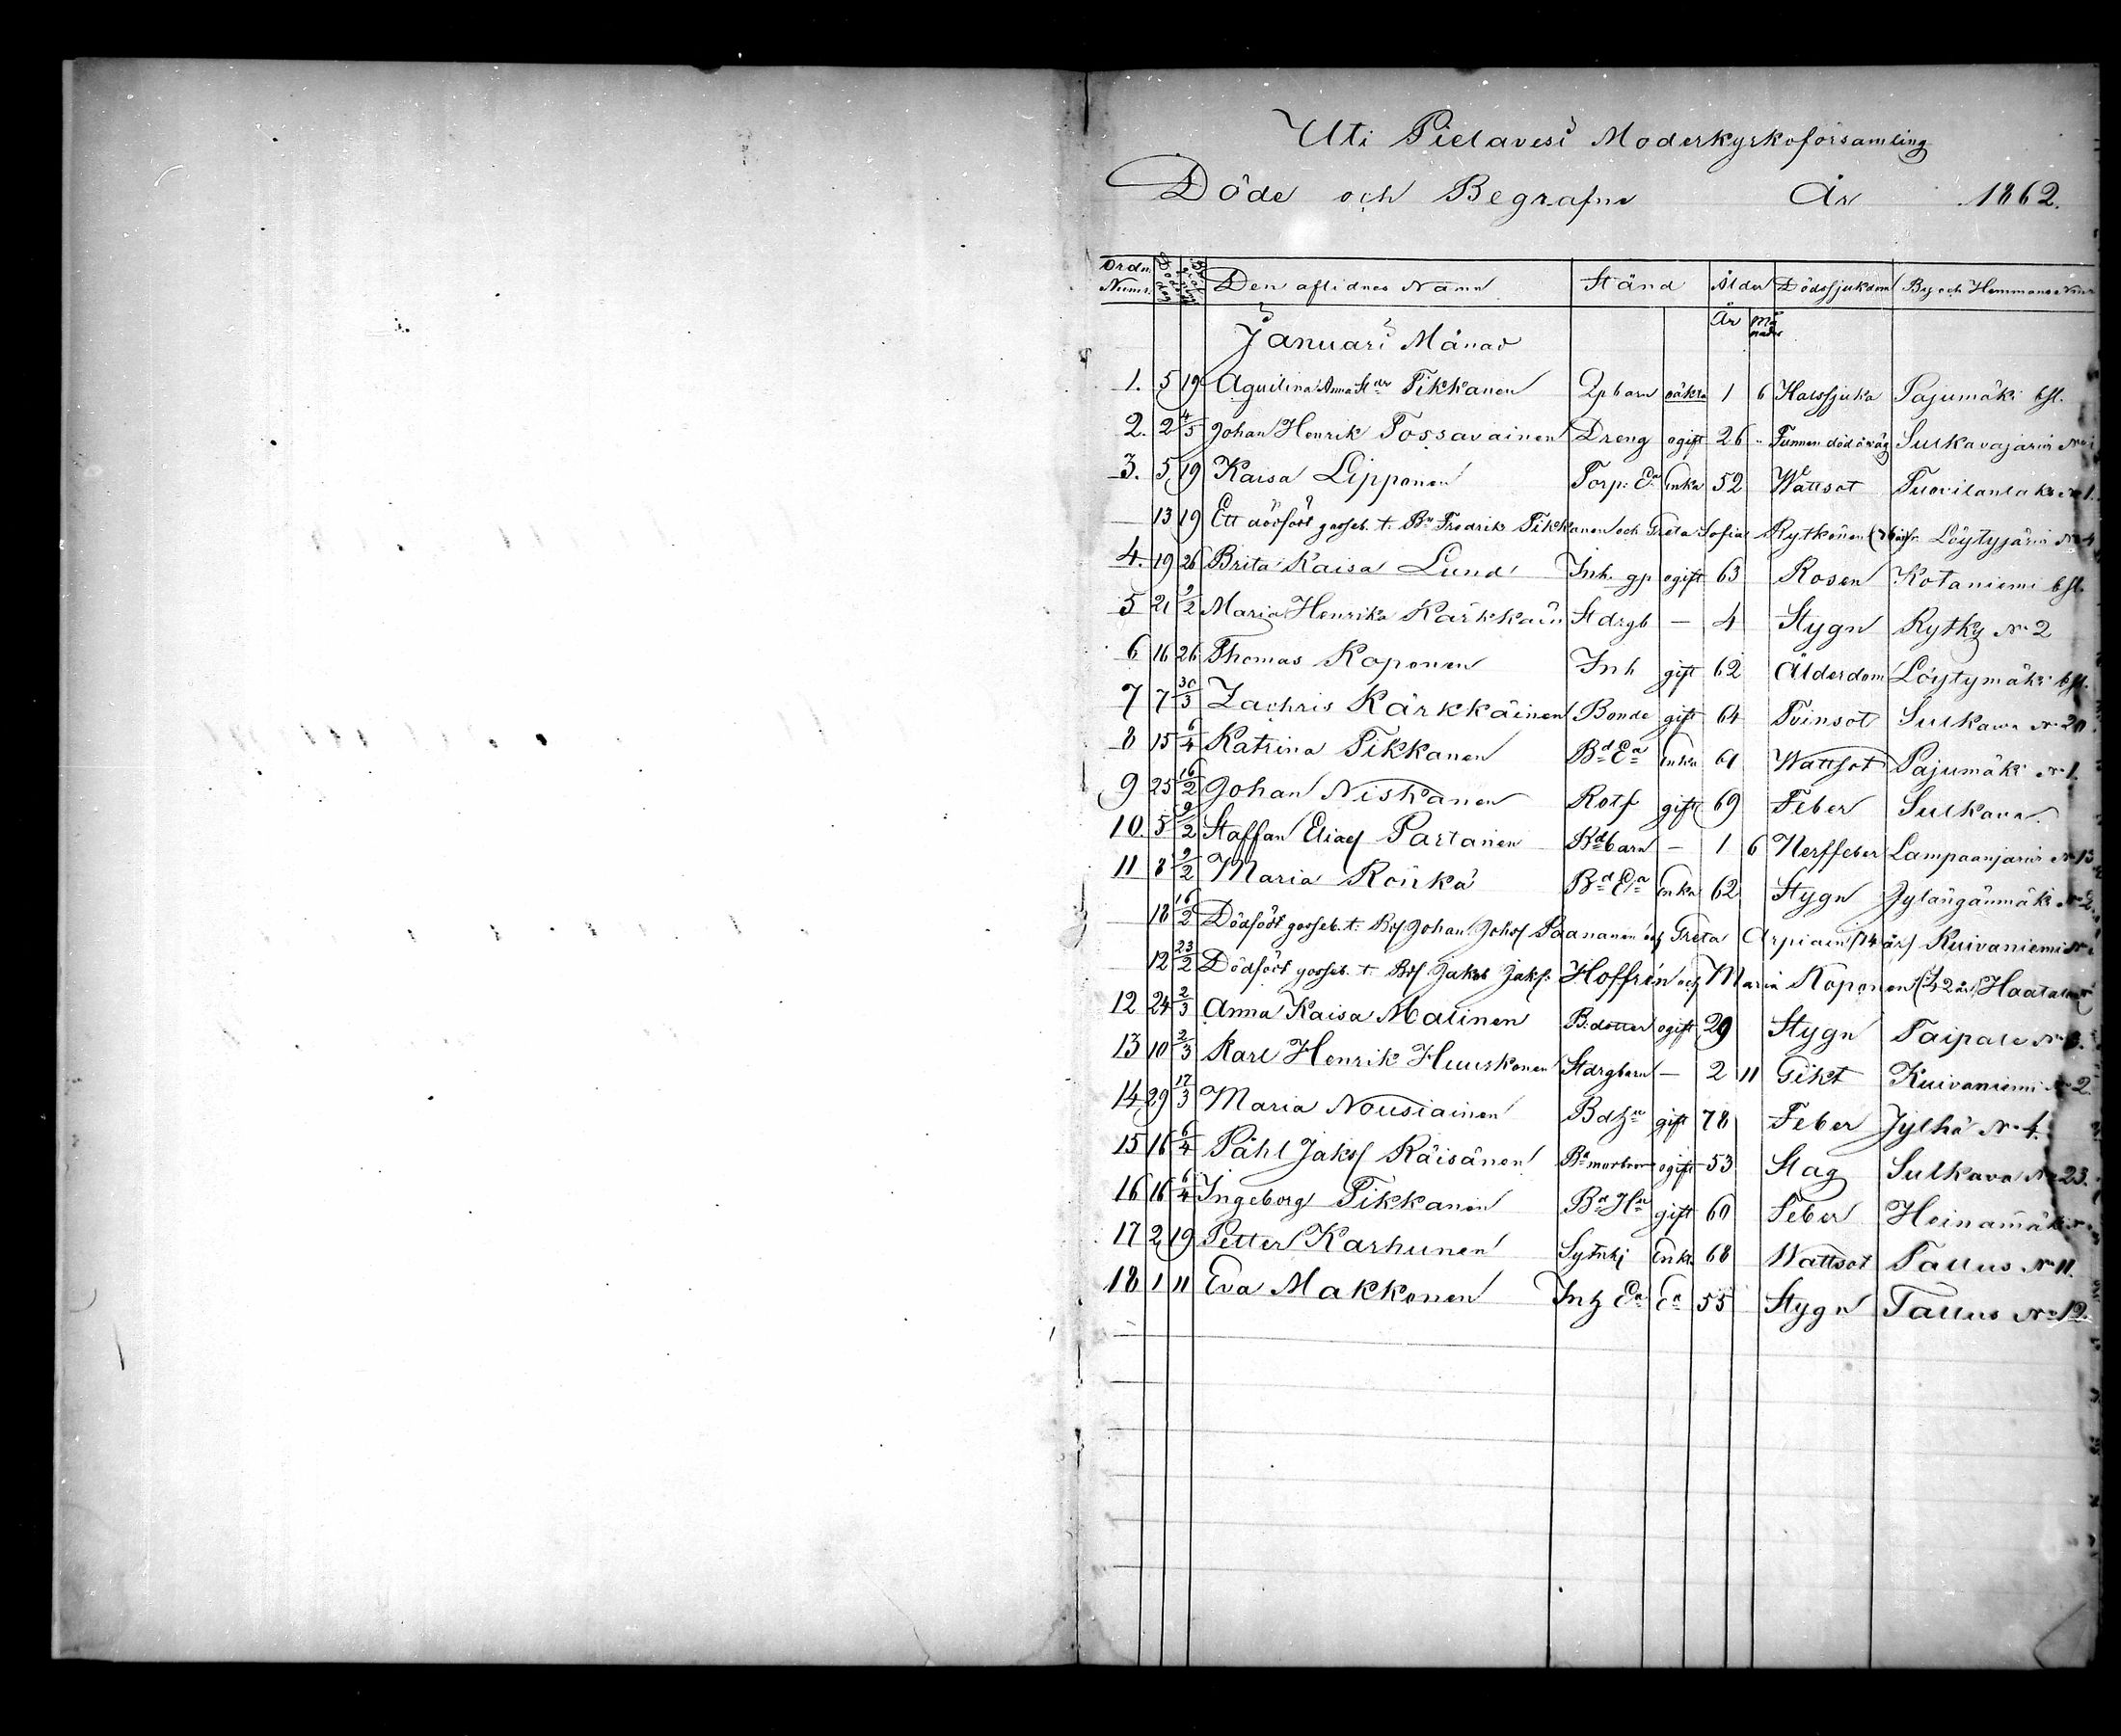 Uti Pielavesi Moderkyrkoforsamling
Döde och Begrafne År 1862.
Ordn. Numr. Döds dag Den aflidnes Namn Stånd Ålder Dödssjukdom By och Hemmans Num
År Månader
Januari Månad
1. 5 19 Aquilina Anna St dr Tikkanen barn oäkta 1 6 Halssjuka Pajumäki bst.
2. 2 4/5 Johan Henrik Tossavainen Dreng ogift 26 " Funnen död å väg Sulkavajärvi No 1
3. 5 19 Kaisa Lipponen Torp. Ea Enka 52 Wattsot Tuovilanlaks No 1.
— 13 19 Ett dödfödt gosseb. t. Bn Fredrik Tikkanen och Greta Sofia Rytkönen Löytyjärvi No 4
4. 19 26 Brita Kaisa Lund Inh. gp ogift 63 Rosen Kotaniemi bst.
5 21 9/2 Maria Henrika Kärkkäin Stdrgb — 4 Stygn Rytky No 2
6 16 26 Thomas Koponen Inh gift 62 Ålderdom Löytymäki bst.
7 7 30/3 Zachris Kärkkäinen Bonde gift 64 Tvinsot Sulkava No 20
8 15 6/4 Katrina Tikkanen Bd Ea Enka 61 Wattsot Pajumäki No 1.
9 25 16/2 Johan Niskanen Rotf gift 69 Feber Sulkava
10 5 9/2 Staffan Elias Partanen Bdbarn — 1 6 Nerffeber Lampaanjärvi No 13
11 8 9/2 Maria Rönkä Bd Ea Enka 62 Stygn Jylängänmäki No 2
— 18 16/2 Dödfödt gosseb. t. Bs Johan Johsf Paananen och Greta Arpiain Kuivaniemi No
— 12 23/2 Dödfödt gosseb. t. Bs Jakob Jaksf. Hoffrén och Maria Koponen Haatala
12 24 2/3 Anna Kaisa Malinen B. dotter ogift 29 Stygn Taipale No 3.
13 10 2/3 Karl Henrik Huuskonen Stdrgbarn — 2 11 Gikt Kuivaniemi No 2.
14 29 17/3 Maria Nousiainen Bdhu gift 78 Feber Jylhä No 4.
15 16 6/4 Påhl Jaksf Räisänen Bd morbror ogift 53 Slag Sulkava No 23.
16 16 6/4 Ingeborg Tikkanen Bd Hu gift 60 Feber Heinämäki No
17 2 19 Petter Karhunen Sytnhj Enkl. 68 Wattsot Tallus No 11.
18 1 11 Eva Makkonen Inh Ea Ea 55 Stygn Tallus No 12.